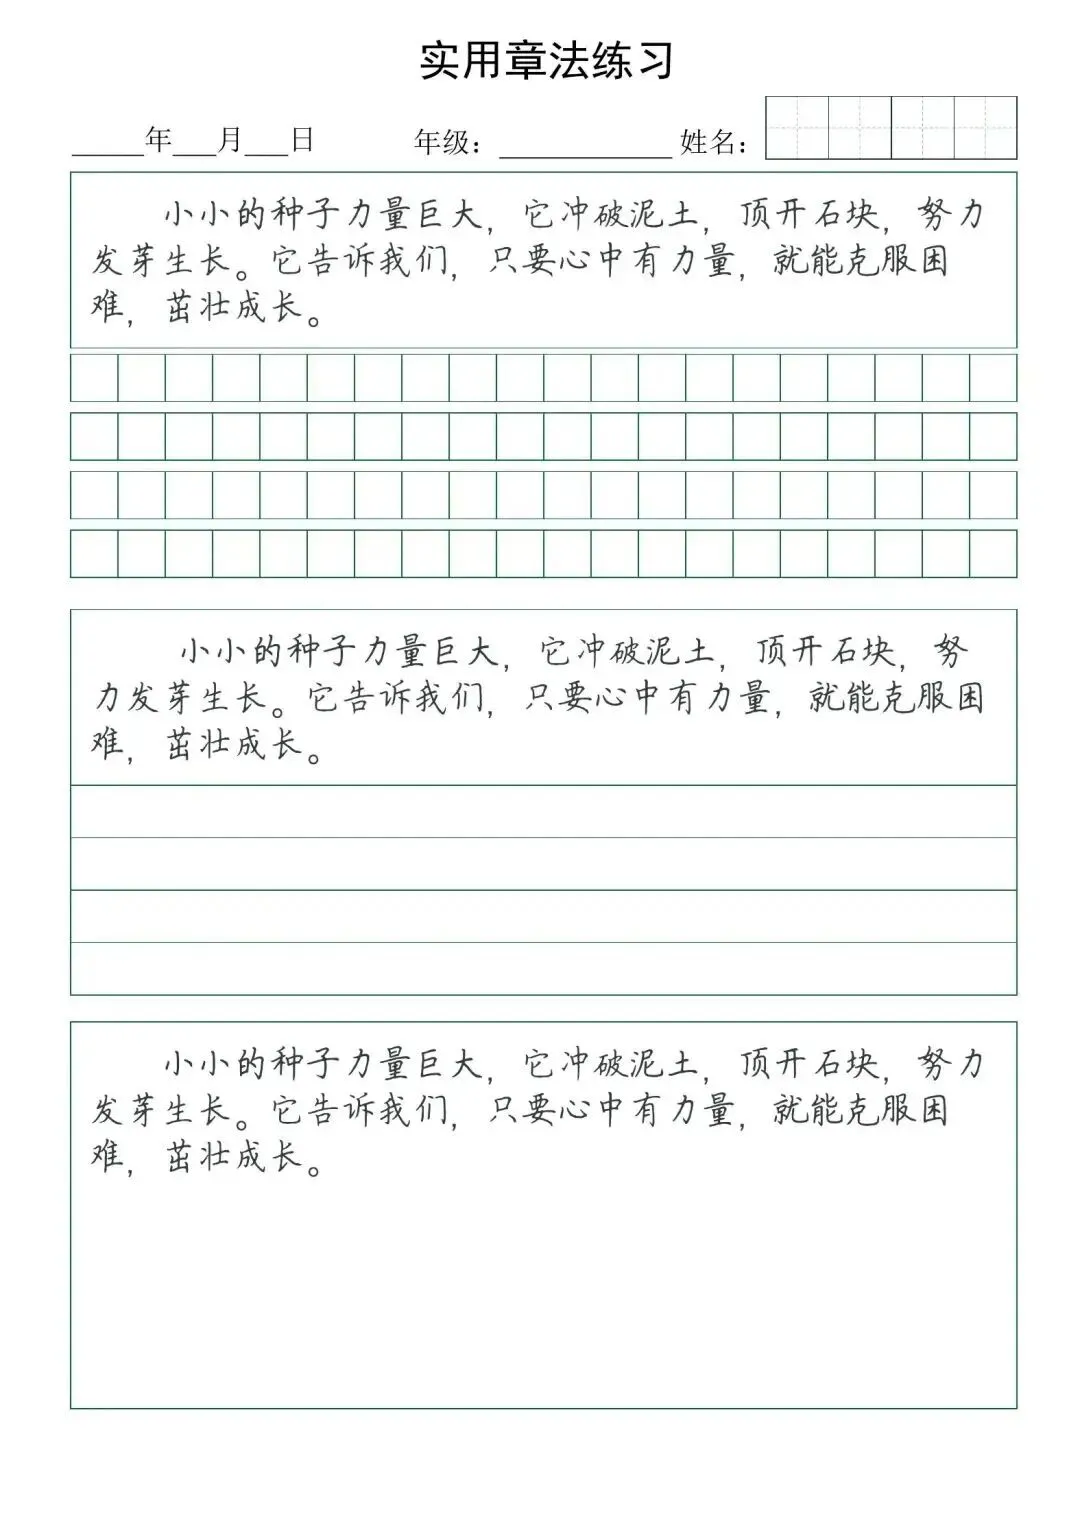 实用章法练习
_____年___月___日 年级：____________ 姓名：
小小的种子力量巨大，它冲破泥土，顶开石块，努力
发芽生长。它告诉我们，只要心中有力量，就能克服困
难，茁壮成长。
小小的种子力量巨大，它冲破泥土，顶开石块，努
力发芽生长。它告诉我们，只要心中有力量，就能克服困
难，茁壮成长。
小小的种子力量巨大，它冲破泥土，顶开石块，努力
发芽生长。它告诉我们，只要心中有力量，就能克服困
难，茁壮成长。